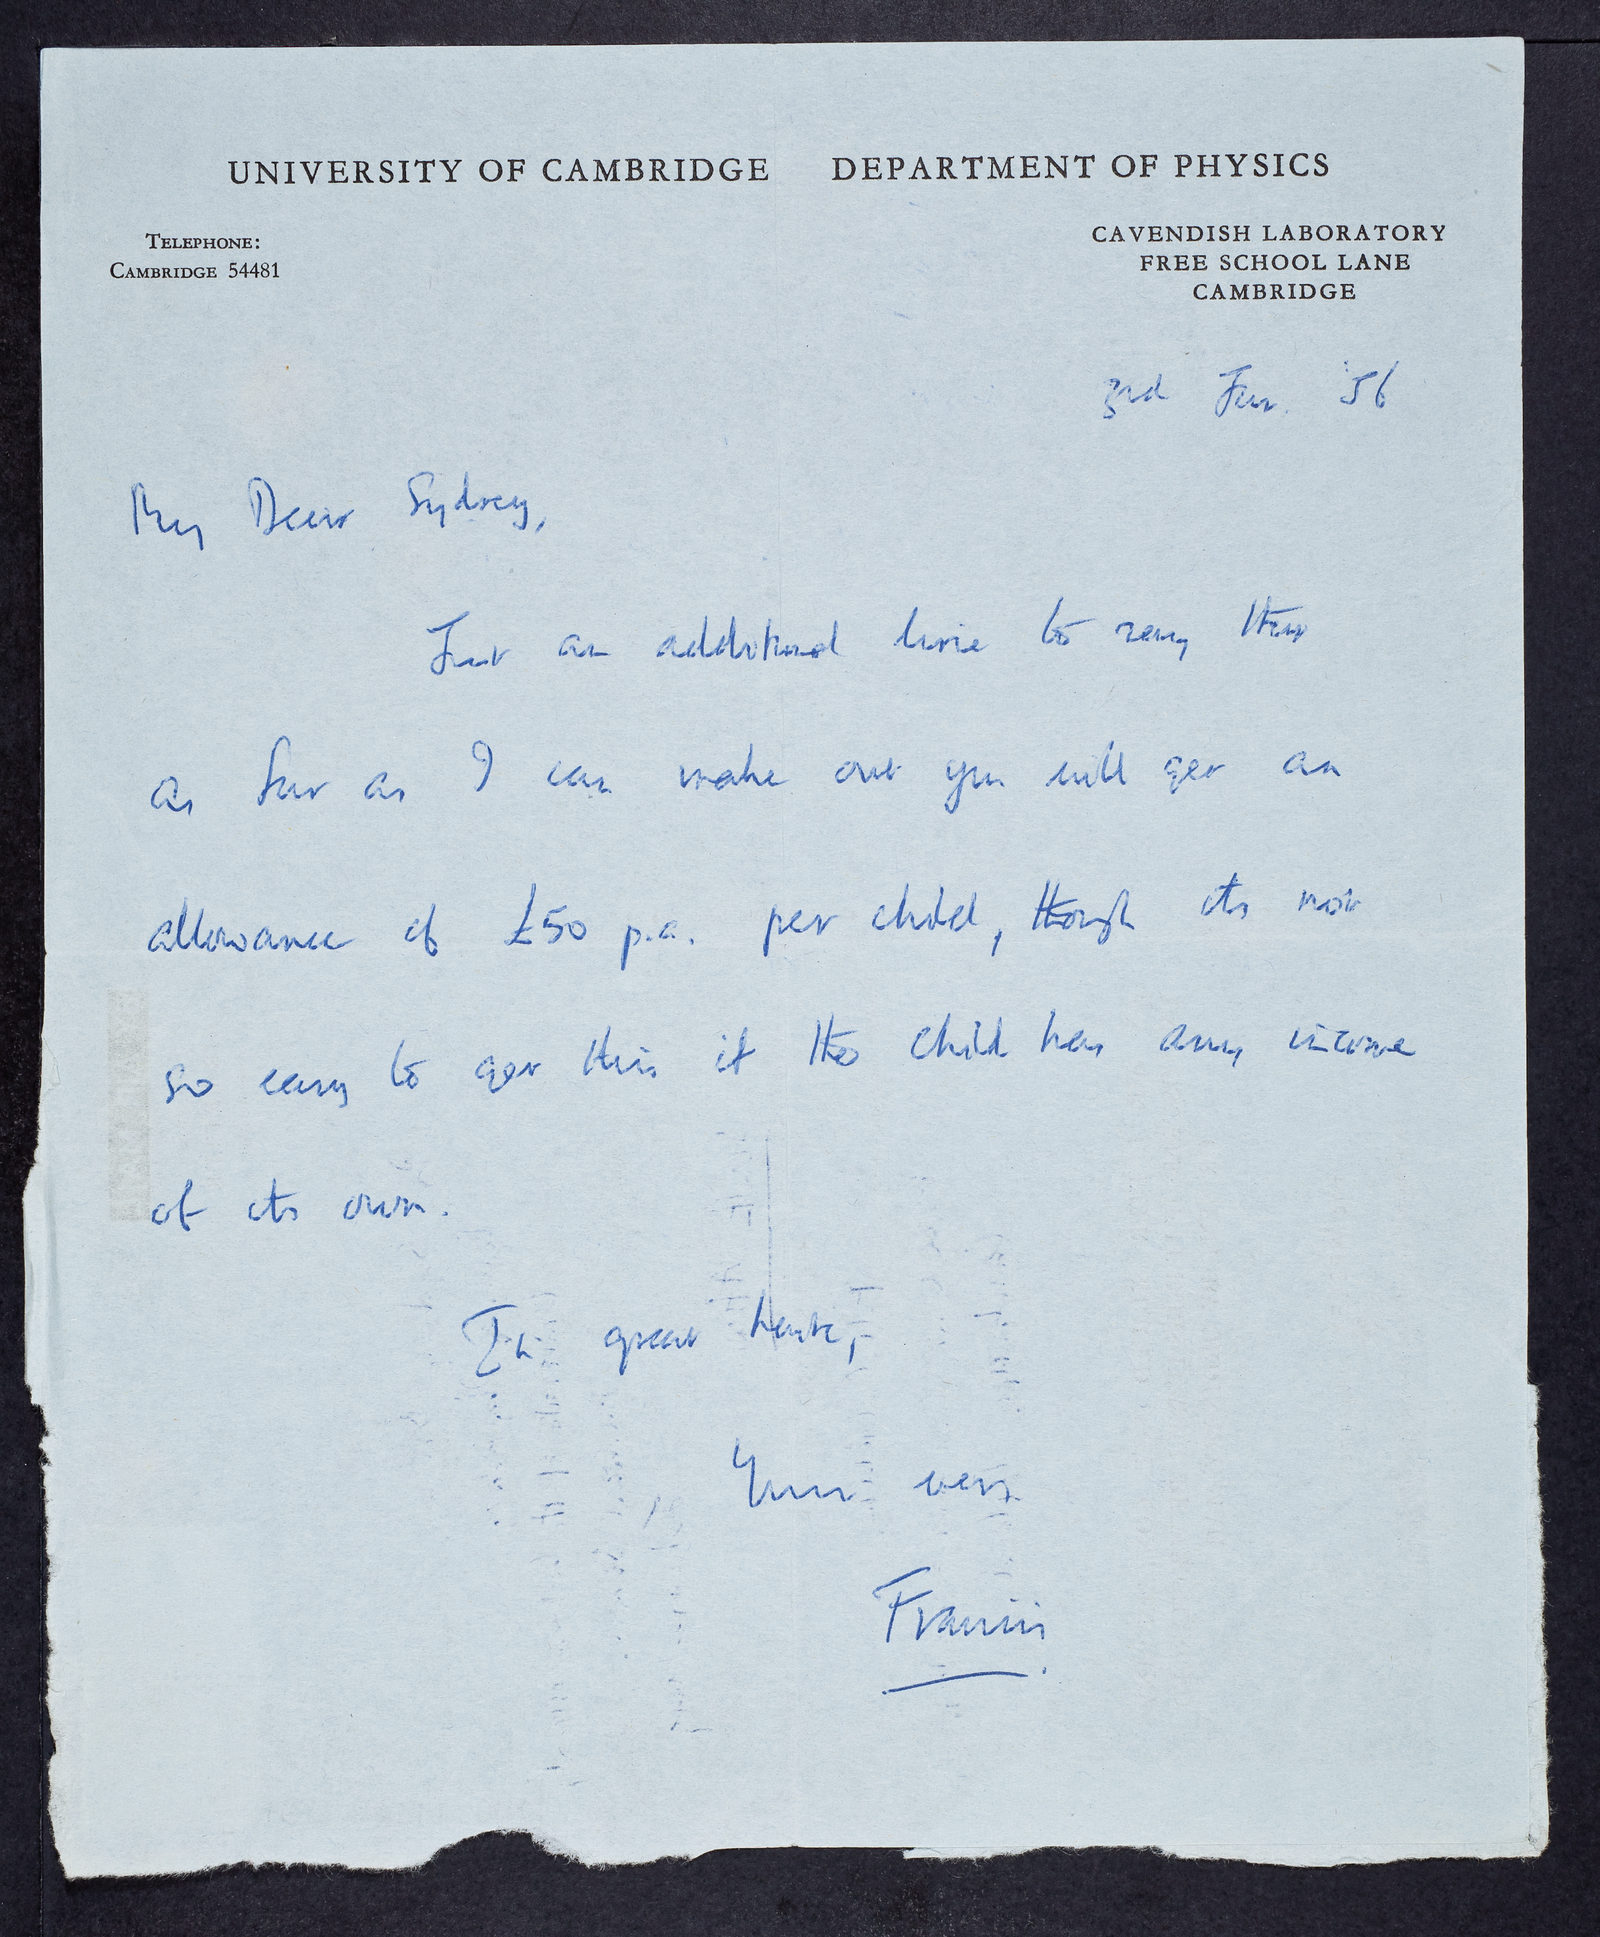 UNIVERSITY OF CAMBRIDGE DEPARTMENT OF PHYSICS
TELEPHONE:
CAMBRIDGE 54481
CAVENDISH LABORATORY
FREE SCHOOL LANE
CAMBRIDGE
3rd '56
My Dear Sydney,
Just an additional line to say that
as far as I can make out you will get an
allowance of £50 p.a. per child, though its not
so easy to get this if the child has any income
of its own.
In great haste,
Yours ever
Francis